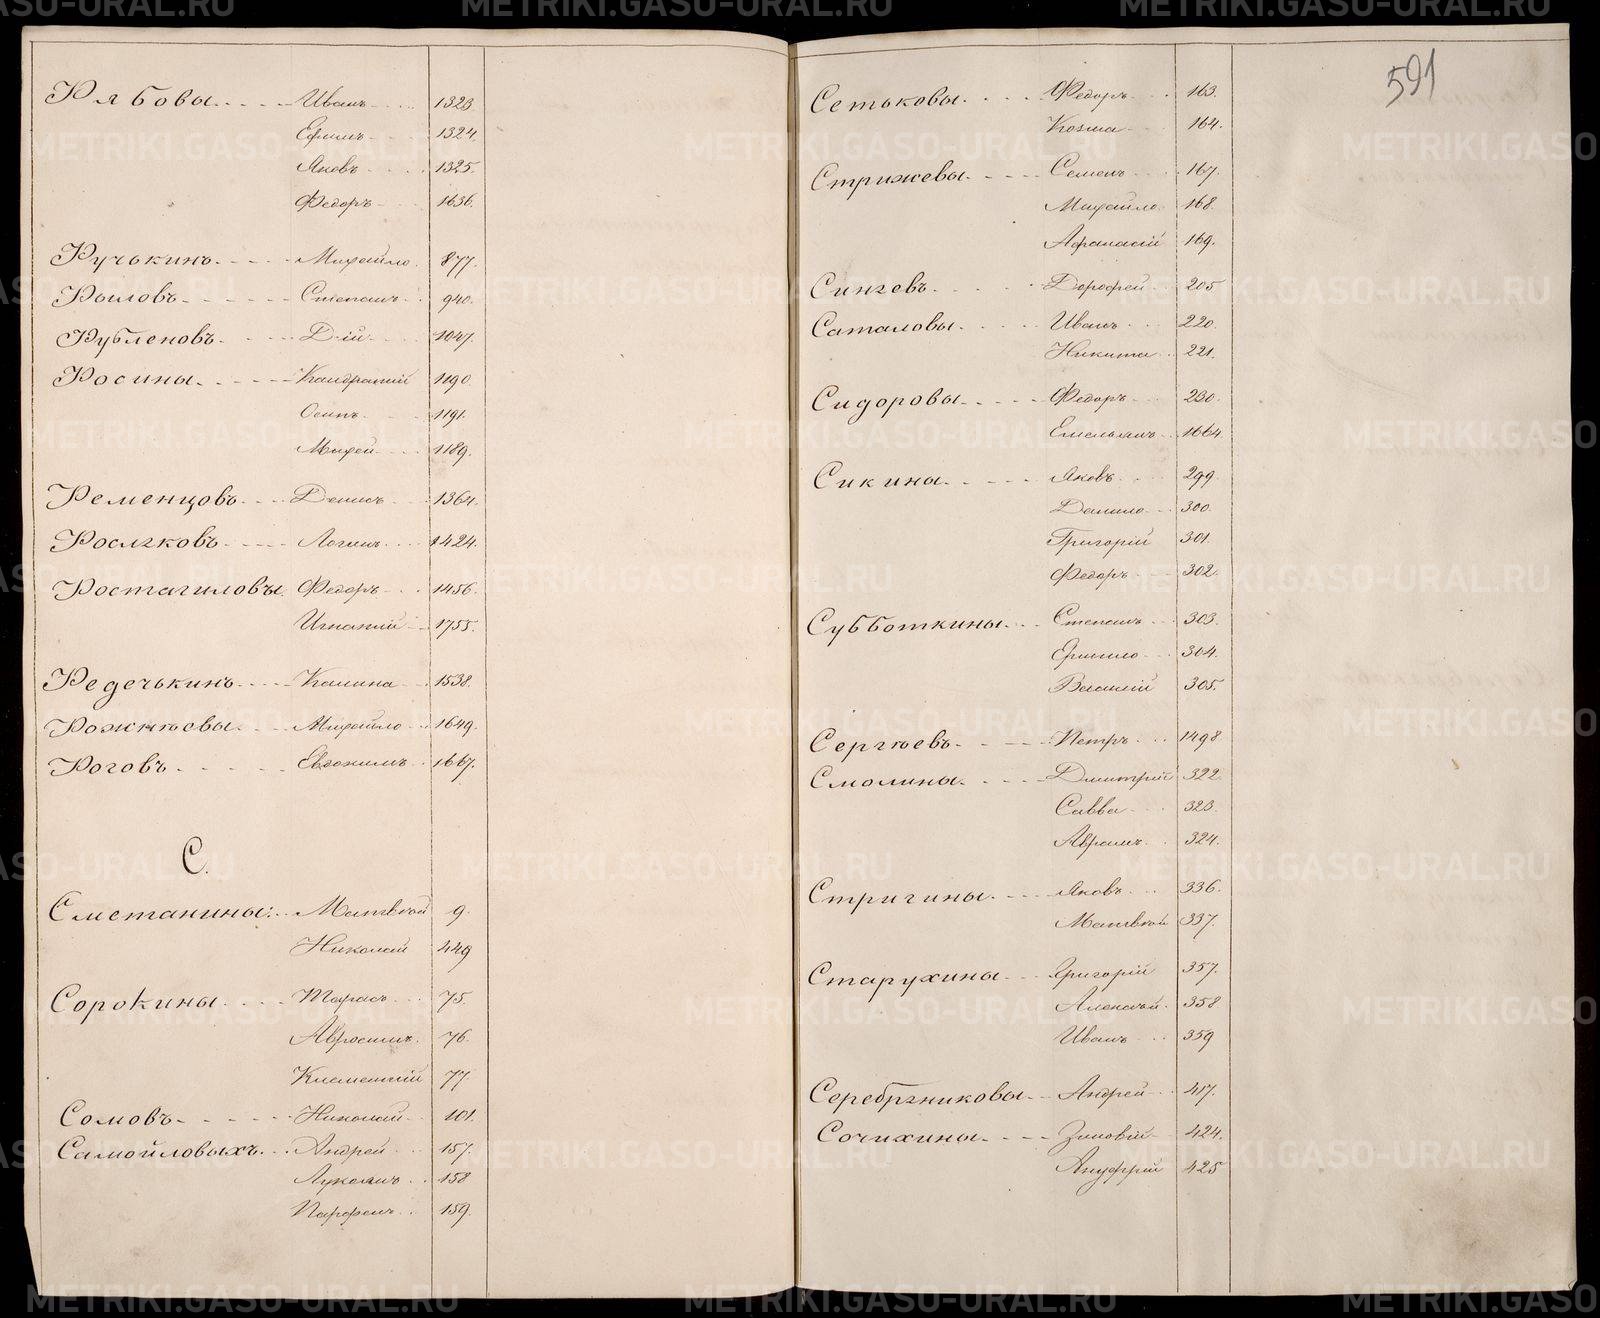 Рябовы Иванъ 1323
Ефимъ 1324.
Яковъ 1325.
Федоръ 1636.
Ручькинъ Михайло 877.
Рыловъ Степанъ 940.
Рубленовъ Дій 1047.
Росины Кандратий 1190.
Осипъ 1191.
1189.
Ременцовъ Денисъ 1364.
Росляковъ Логинъ 1424.
Ростягиловы Федоръ 1456.
Игнатий 1755.
Редечькинъ Калина 1538.
Рожнюевы Михайло 1649.
Роговъ Евдокимъ 1667.
С.
Сметанины: Матвѣй 9.
Николай 449
Сорокины Тарасъ 75.
Авросимъ 76.
Клементий 77.
Сомовъ Николай 101.
Самойловыхъ Андрей 157.
Лукоянъ 158
Парфенъ 159.
591
Сетьковы Федоръ 163.
Козма 164.
Стрижевы Семенъ 167.
Михайло 168.
Афанасий 169.
Синяевъ Дорофей 205
Саталовы Иванъ 220.
Никита 221.
Сидоровы Федоръ 230.
Емельянъ 1664
Сикины Яковъ 299
Данило 300.
Григорій 301.
Федоръ 302.
Субботкины Степанъ 303.
304.
305.
Сергѣевъ Петръ 1498
Смолины Дмитрий 322
Савва 323.
Аврамъ 324.
Стригины Яковъ 336.
Матвѣй 337.
Старухины Григорій 357.
Алексѣй 358
Иванъ 359
Серебряниковы Андрей 417.
Сочихины Зиновій 424.
Ануфрий 425
METRIKI.GASO-URAL.RU